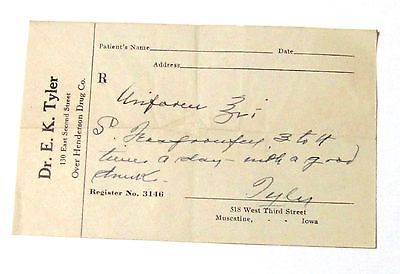 Dr. E. K. Tyler
130 East Second Street
Over Henderson Drug Co.
Patient's Name Date
Address
R
Uniforen ℥i
S. 3 to 4
times a day – with a good
drink.
Tyler
Register No. 3146
518 West Third Street
Muscatine, - - Iowa